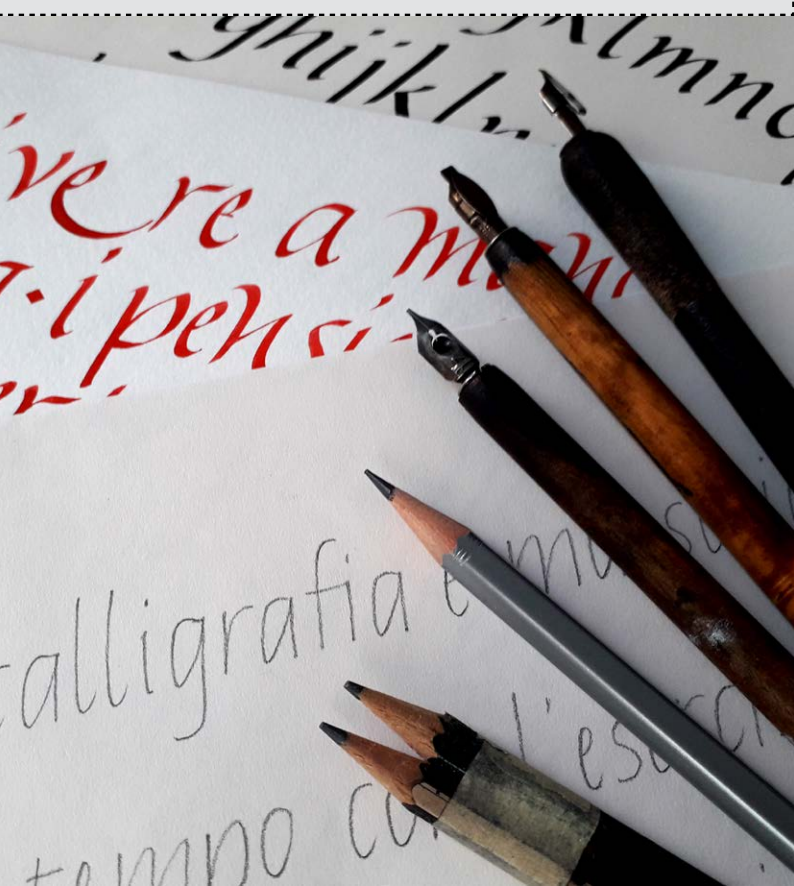 jklmno
ghijkln
ivere a mani
a·i pensi
calligrafia è ma su
l'eserci
tempo co